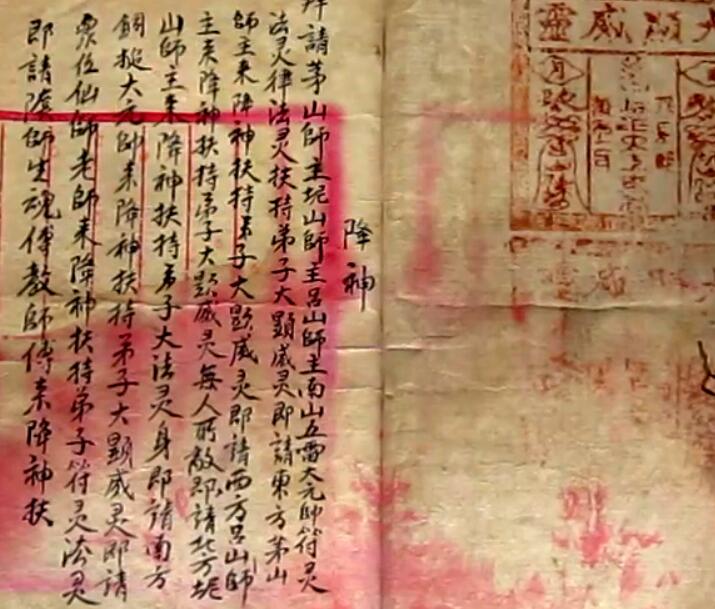 大顯威靈
降神
拜請茅山師主坭山師主呂山師主南山五雷大元帥符灵
法灵律法灵扶持弟子大顯威灵即請東方茅山
師主来降神扶持弟子大顕威灵即請西方呂山師
主来降神扶持弟子大顕威灵每人所敵即請北方坭
山師主来降神扶持弟子大法灵身即請南方
大元帥来降神扶持弟子大顕威灵即請
眾位仙師老師来降神扶持弟子符灵法灵
即請陰師生魂傅教師傅来降神扶